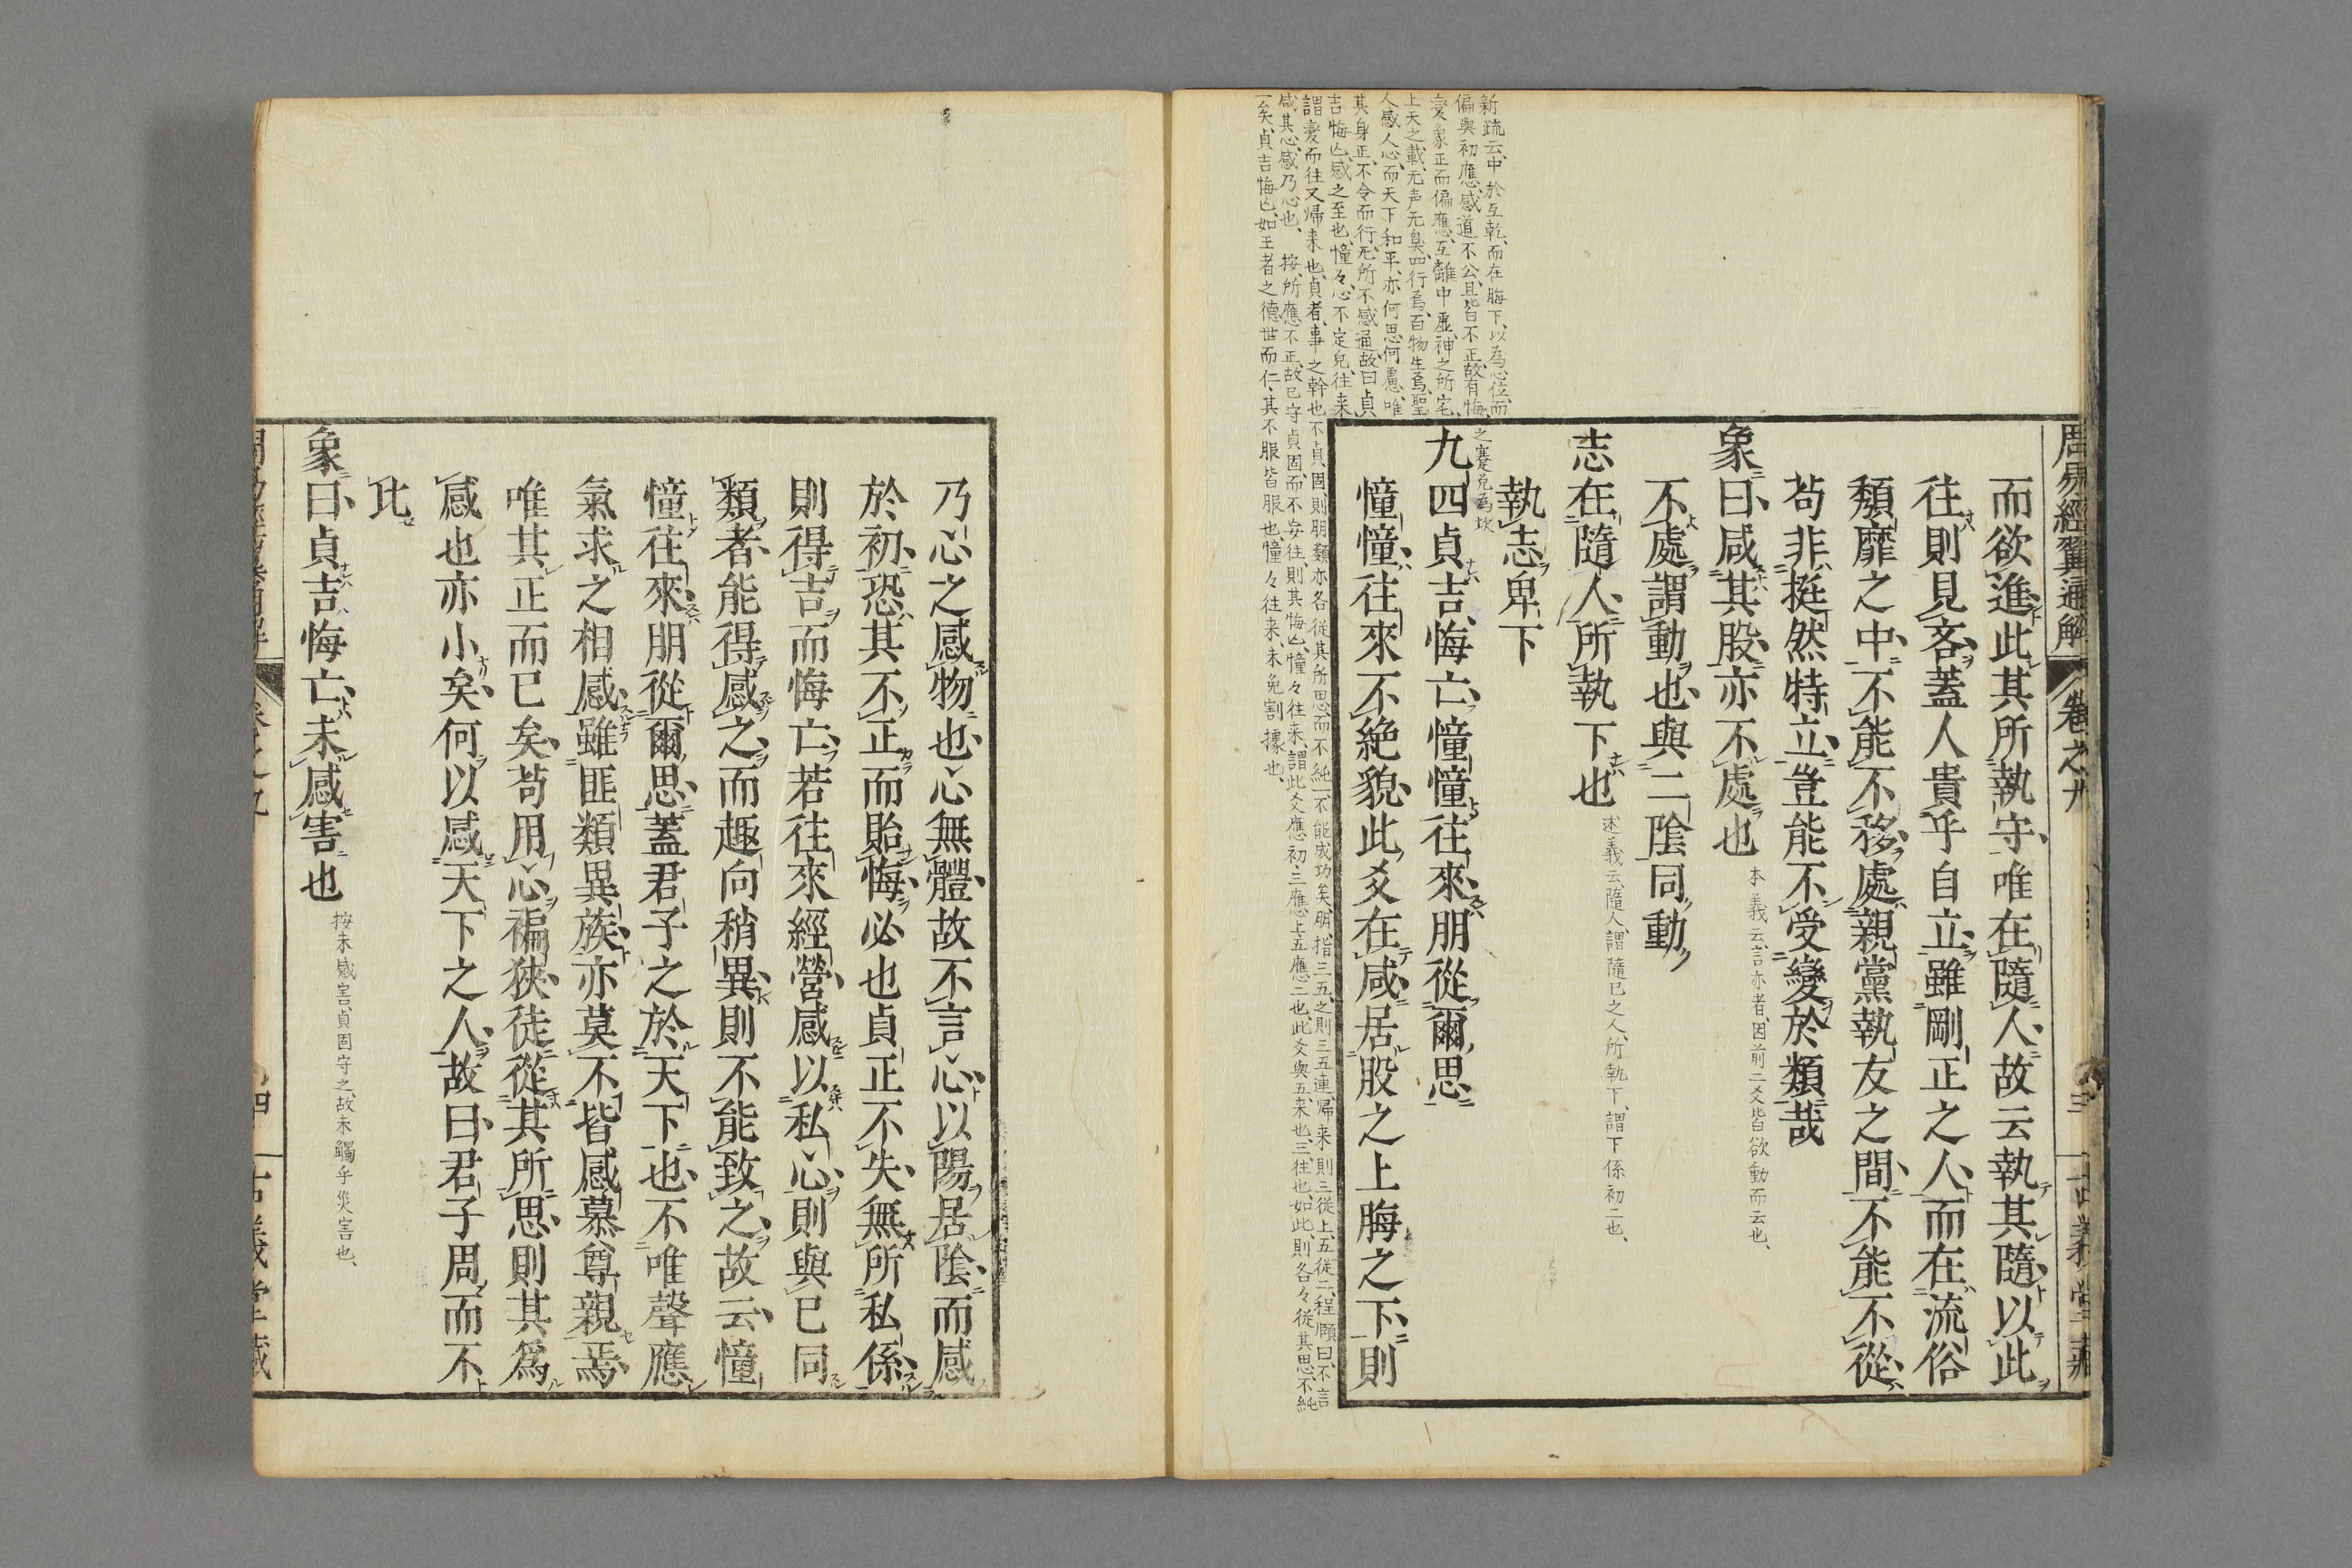 周易經翼通解 卷之九 三 古義堂藏
而欲進此其所執守唯在隨人故云執其隨以此
往則見吝蓋人貴乎自立雖剛正之人而在流俗
頽靡之中不能不移處親黨執友之間不能不從
苟非挺然特立豈能不受變於類哉
象曰咸其股亦不處也
本義云、言亦者、因前二爻皆欲動而云也、
不處謂動也與二陰同動
志在隨人所執下也
述義云、隨人、謂隨已之人、所執下、謂下係初二也、
執志卑下
之蹇兌為坎
九四貞吉悔亡憧憧往來朋從爾思
憧憧往來不絶貌此爻在咸居股之上脢之下則
新疏云、中於互乾、而在脢下、以為心位、而
偏與初應、感道不公、且皆不正、故有悔、
變象正而偏應、互離中虛、神之所宅、
上天之載、无声无臭、四行焉、百物生焉、聖
人感人心、而天下和平、亦何思何慮、唯
其身正、不令而行、无所不感通、故曰貞
吉悔亡、感之至也、憧々、心不定皃、往来
謂変而往又帰来也、貞者、事之幹也、不貞固、則朋類亦各從其所思而不純一、不能成功矣、朋、指三五、之則三五連、帰来則三從上、五從二、程頤曰、不言
咸其心、感乃心也、按、所應不正、故已守貞固、而不妄往、則其悔亡、憧々往来、謂此爻應初、三應上、五應二也、此爻與五、来也、三往也、如此、則各々從其思、不純
一矣、貞吉悔亡、如王者之德、世而仁、其不服皆服也、憧々往来、未免割據也、
乃心之感物也心無體故不言心以陽居陰而感
於初恐其不正而貽悔必也貞正不失無所私係
則得吉而悔亡若往來經營感以私心則與已同
類者能得感之而趣向稍異則不能致之故云憧
憧往來朋從爾思蓋君子之於天下也不唯聲應
氣求之相感雖匪類異族亦莫不皆感慕尊親焉
唯其正而已矣苟用心褊狹徒從其所思則其爲
感也亦小矣何以感天下之人故曰君子周而不
比
象曰貞吉悔亡未感害也
按、未感害、貞固守之、故未觸乎災害也、
四 古義堂藏